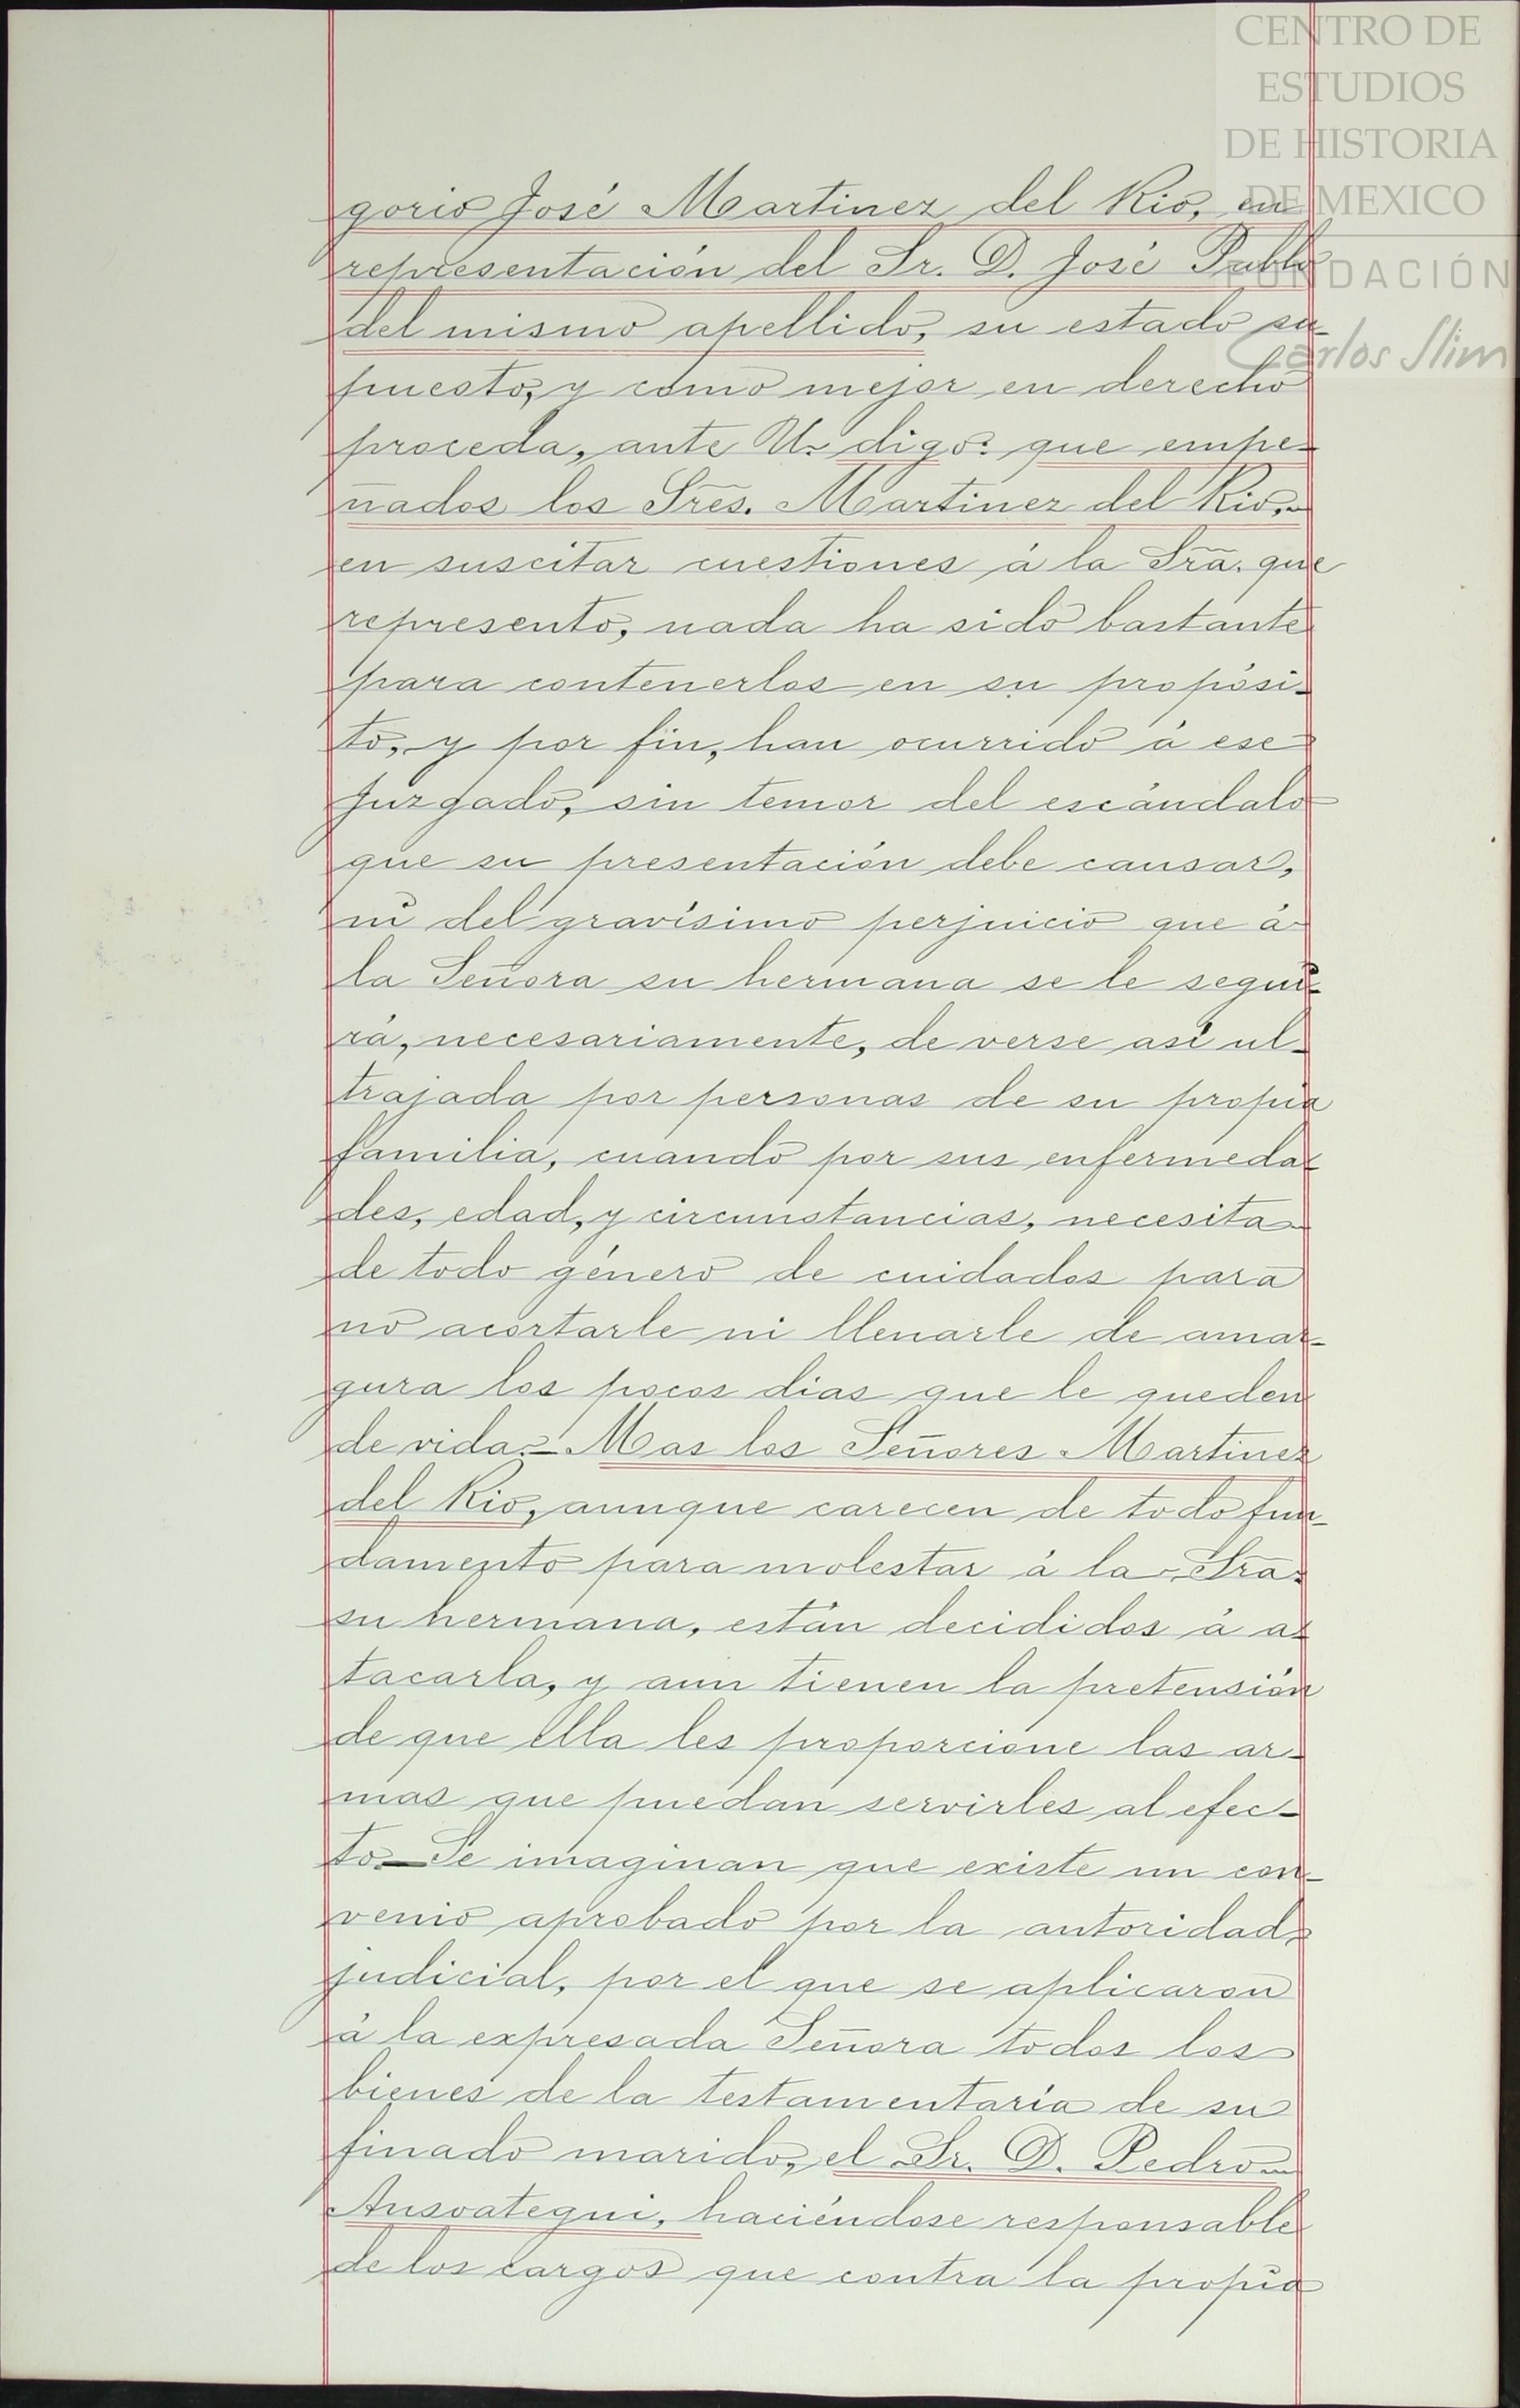 CENTRO DE
ESTUDIOS
DE HISTORIA
DE MEXICO
FUNDACIÓN
Carlos Slim
gorio José Martinez del Rio, en
representación del Sr. D. José Pablo
del mismo apellido, su estado su-
puesto, y como mejor en derecho
proceda, ante U. digo: que empe-
ñados los Sres. Martinez del Rio,
en suscitar cuestiones á la Sra. que
represento, nada ha sido bastante
para contenerlos en su propósi-
to, y por fin, han ocurrido á ese
Juzgado, sin temor del escándalo
que su presentación debe causar,
ni del gravísimo perjuicio que á
la Señora su hermana se le segui-
rá, necesariamente, de verse así ul-
trajada por personas de su propia
familia, cuando por sus enfermeda-
des, edad, y circunstancias, necesita
de todo género de cuidados para
no acortarle ni llenarle de amar-
gura los pocos dias que le queden
de vida.- Mas los Señores Martinez
del Rio, aunque carecen de todo fun-
damento para molestar á la Sra.
su hermana, están decididos á a-
tacarla, y aun tienen la pretensión
de que ella les proporcione las ar-
mas que puedan servirles al efec-
to.- Se imaginan que existe un con-
venio aprobado por la autoridad
judicial, por el que se aplicaron
á la expresada Señora todos los
bienes de la testamentaría de su
finado marido, el Sr. D. Pedro
Ansoategui, haciéndose responsable
de los cargos que contra la propia